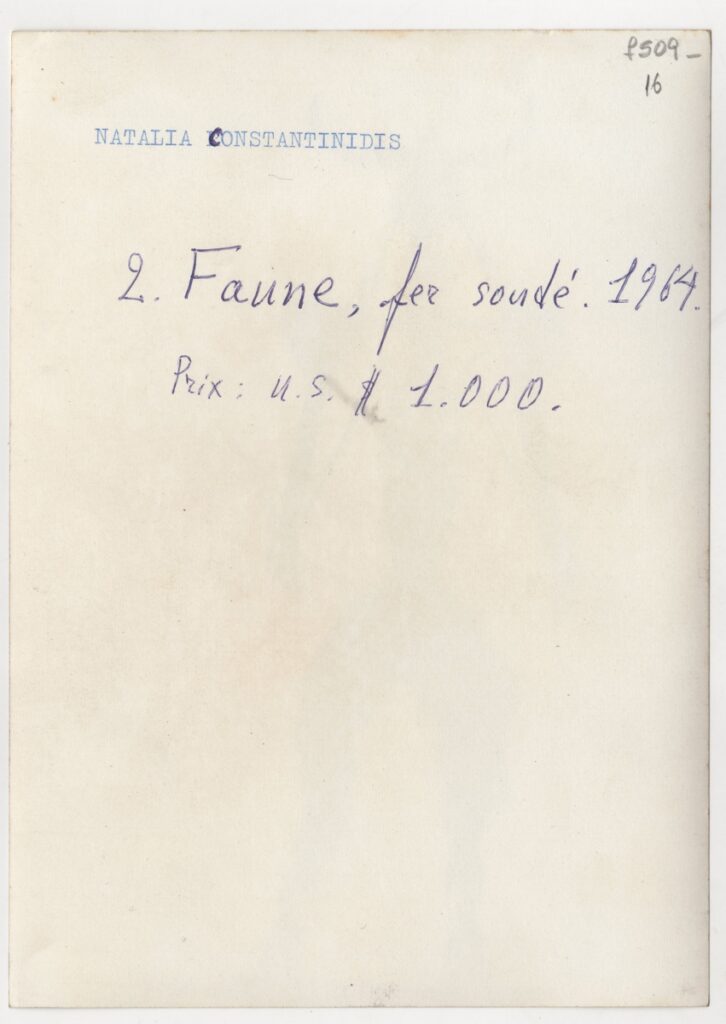 f509-
16
NATALIA CONSTANTINIDIS
2. Faune, fer soudé. 1964.
Prix: U.S. $ 1.000.